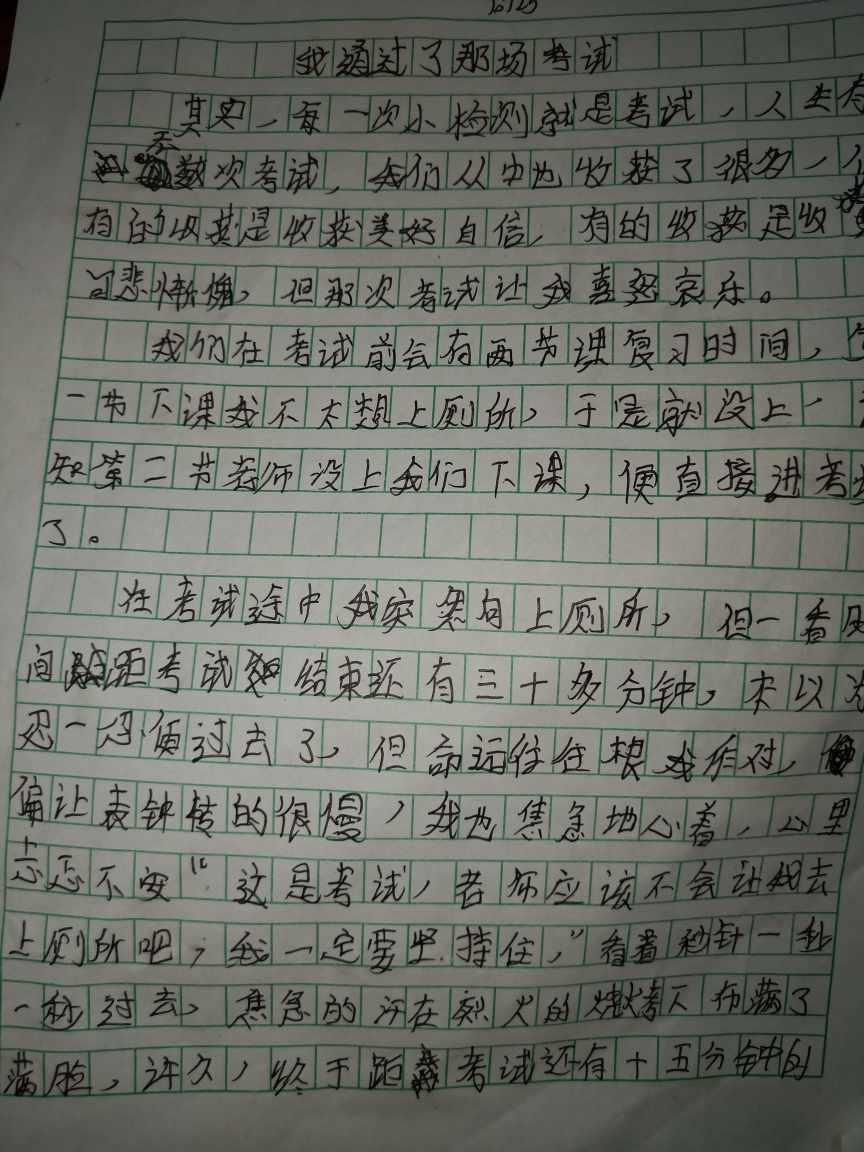 我通过了那场考试
其实,每一次小检测就是考试,人生有
无数次考试,我们从中也收获了很多,
有的收获是收获美好自信,有的收获是收
可悲惭愧,但那次考试让我喜怒哀乐。
我们在考试前会有两节课复习时间,
一节下课我不太想上厕所,于是就没上,
知第二节老师没上我们下课,便直接进考场
了。
在考试途中我突然向上厕所,但一看时
间距考试结束还有三十多分钟,本以为
忍一忍便过去了,但命运往往想我作对,
偏让表钟转的很慢,我也焦急地心着,心里
忐忑不安“这是考试,老师应该不会让我去
上厕所吧,我一定要坚持住,”看着秒针一秒
一秒过去,焦急的汗在烈火的燃烤下布满了
满脸,许久,终于距考试还有十五分钟的